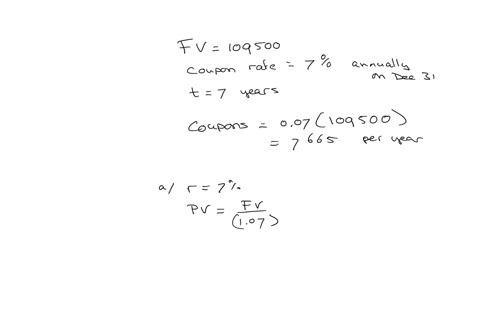 FV = 109500
coupon rate = 7% annually
on Dec 31
t = 7 years
Coupons = 0.07(109500)
= 7665 per year
a/ r = 7%
PV = FV
(1.07)